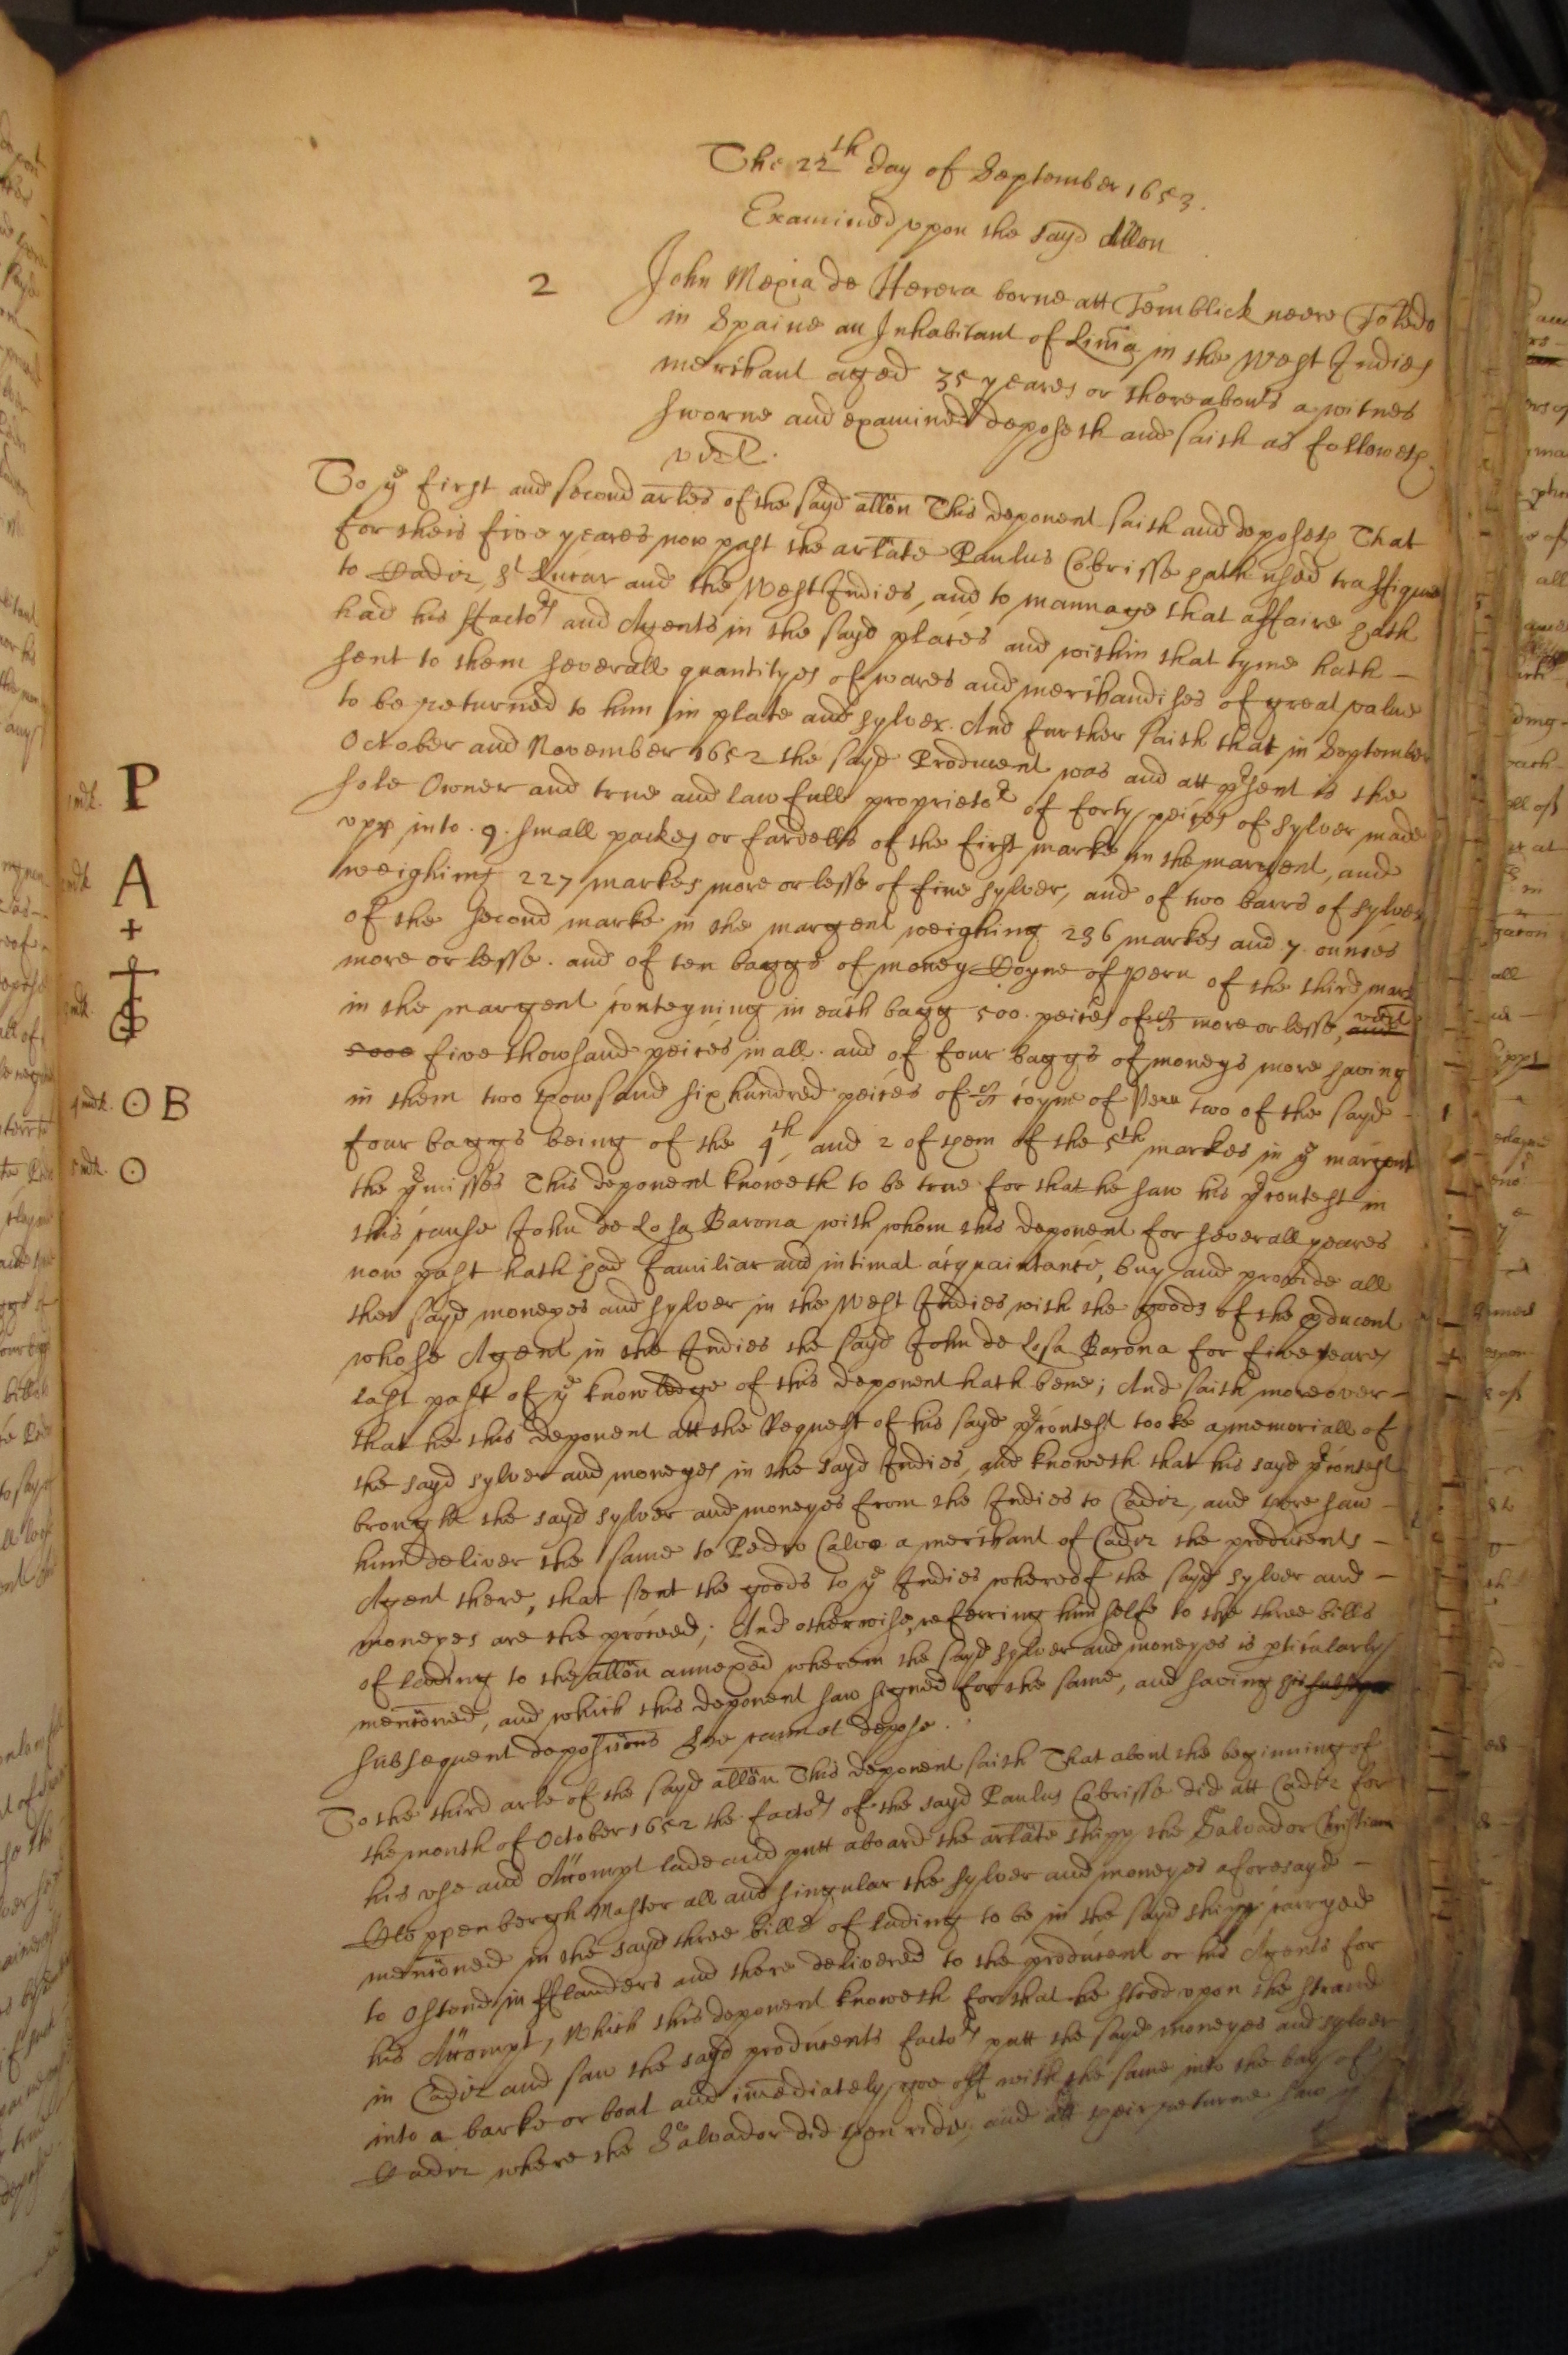 The 22th day of September 1653.
Examined upon the sayd allon
2
John Mexia de Herera borne att Temblick neere Toledo
in Spaine an Inhabitant of Lima in the West Indies
merchant aged 35 yeares or thereabouts a witnes
sworne and examined deposeth and saith as followeth
vizt.
To ye first and second artes of the sayd allon This deponent saith and deposeth That
for theis five yeares now past the artate Paulus Cebrisse hath used traffique
to Cadiz, St Lucar and the West Indies, and to mannage that affaire hath
had his ffactors and Agents in the sayd places and within that tyme hath
sent to them severall quantityes of wares and merchandises of great value
to be returned to him in plate and sylver. And further saith that in September
October and November 1652 the sayd Producent was and att present is the
sole Owner and true and lawfull proprietor of forty peices of sylver made
upp into .9. small packes or fardells of the first marke in the margent, and
weighing 227 markes more or lesse of fine sylver, and of two barrs of sylver
of the second marke in the margent weighing 236 markes and 7 ounces
more or lesse. and of ten baggs of money Coyne of Peru of the third marke
in the margent conteyning in each bagg 500. peices of 8/8 more or lesse, and vizt
5000 five thowsand peices in all. and of four baggs of moneys more having
in them two thowsand six hundred peices of 8/8 coyne of Peru two of the sayd
four baggs being of the 4th and 2 of them of the 5th markes in ye margent
the pmisses This deponent knoweth to be true for that he saw his precontest in
this cause John de Losa Barona with whom this deponent for severall yeares
now past hath had familiar and intimat acquaintance, buy and provide all
the sayd moneyes and sylver in the West Indies with the goods of the pducent
whose Agent in the Indies the sayd John de Losa Barona for five yeares
last past of ye knowledge of this deponent hath bene; And saith moreover
that he this deponent att the Request of his sayd precontest tooke a memoriall of
the sayd sylver and moneyes in the sayd Indies, and knoweth that his sayd precontest
brought the sayd sylver and moneyes from the Indies to Cadiz, and there saw
him deliver the same to Pedro Calvo a merchant of Cadiz the producents
Agent there, that sent the goods to ye Indies whereof the sayd sylver and
moneyes are the proceed; And otherwise, referring himselfe to the three bills
of lading to the allon annexed wherein the sayd sylver and moneyes is pticularly
mencioned, and which this deponent saw signed for the same, and saving his
subsequent deposicions hee cannot depose.
To the third arle of the sayd allon This deponent saith That about the beginning of
the month of October 1652 the factors of the sayd Paulus Cebrisse did att Cadiz for
his use and Accompt lade and putt aboard the artate shipp the Salvador Christian
Cloppenbergh Master all and singular the sylver and moneyes aforesayd
mencioned in the sayd three bills of lading to be in the sayd shipp carryed
to Ostend in fflanders and there delivered to the producent or his Agents for
his Accompt, Which this deponent knoweth for that he stood upon the strand
in Cadiz and saw the sayd producents factors putt the sayd moneyes and sylver
into a barke or boat and imediately goe off with the same into the bay of
Cadiz where the Salvador did then ride, and att their returne saw
1 mk. P
2 mk. A
3 mk.
4 mk. O B
5 mk. O